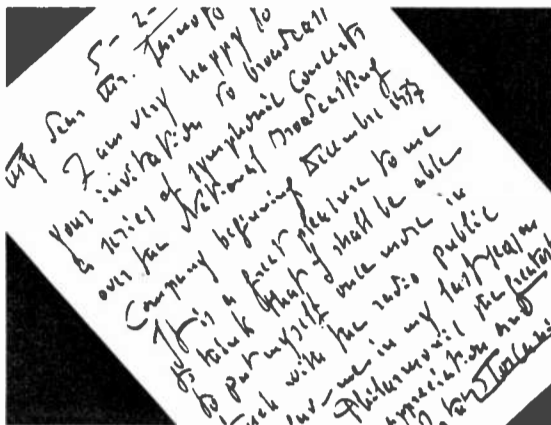 5-2-
My dear Mr.
I am very happy to
your invitation to broadcast
a series of symphonic concerts
over the National Broadcasting
Company beginning December 1937
It is a great pleasure to me
to think that I shall be able
to put myself once more in
with the radio public
me in my last season
Philharmonic the greatest
appreciation and